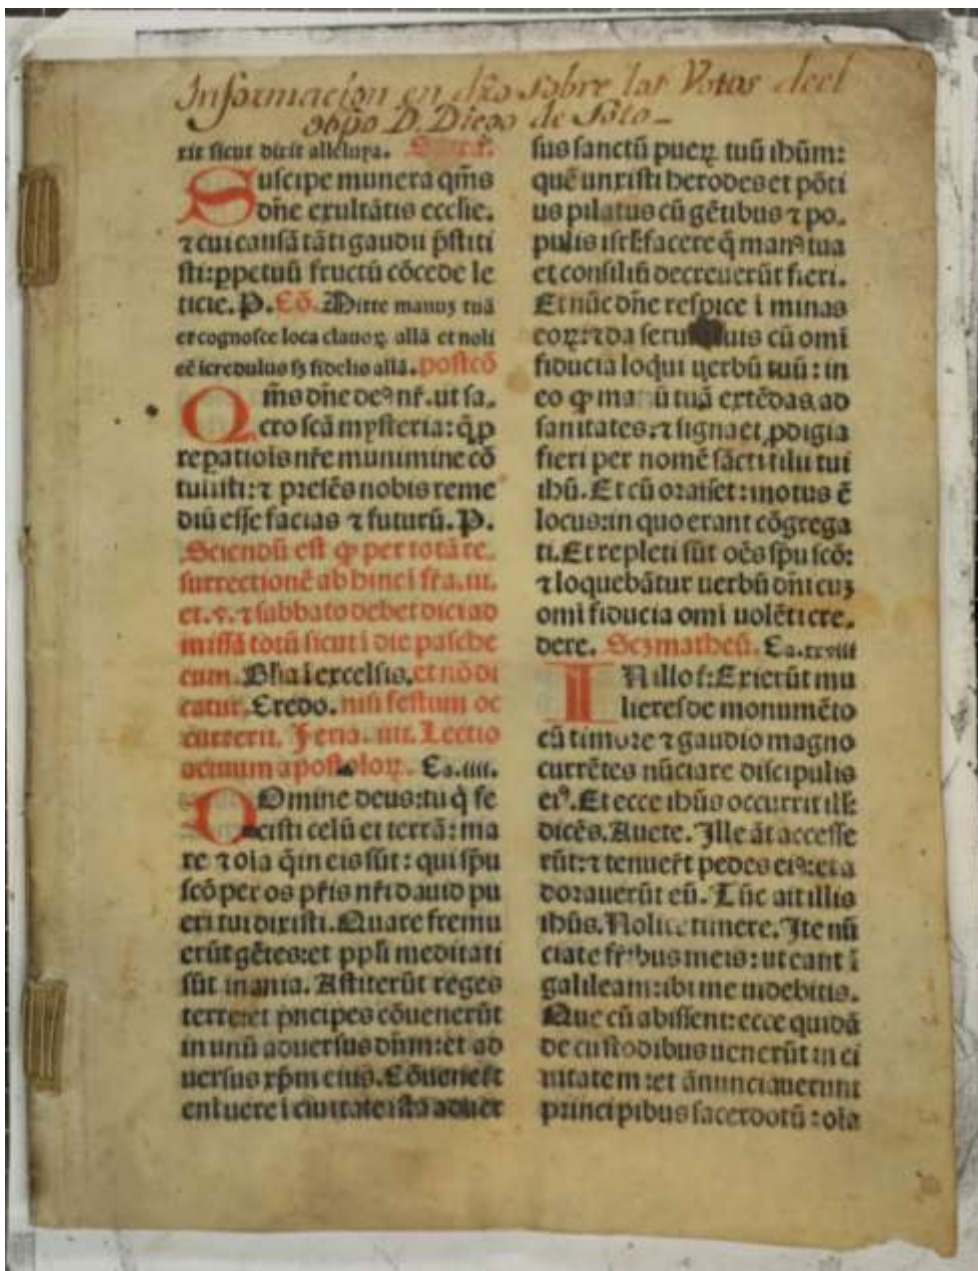 Informacion en dr̃o sobre los Votos deel
obp̃o D. Diego de Soto
rit sicut dixit alleluya.
Suscipe munera qm̃s
dñe exultãtis ecclie.
⁊ cui causã tãti gaudii p̃stiti
sti: ꝑpetuũ fructũ cõcede le
ticie. P. Cõ. Mitte manuʒ tuã
et cognosce loca clauoꝝ allã et noli
eẽ icredulus sʒ fidelis allã. postcõ
Qm̃s dñe deꝰ nr̃. ut sa.
cro scã mysteria: q̃ ꝓ
reꝑatiõis nr̃e munimine cõ
tulisti: ⁊ presẽs nobis reme
diũ esse facias ⁊ futurũ. P.
Sciendũ est ꝙ per totã re.
surrectionẽ ab hinc i fr̃a. iii.
et. v. ⁊ sabbato debet dici ad
missã totũ sicut i die pasche
cum. Glia i excelsis. et nõ di
catur. Credo. nisi festum oc
currerit. Feria. iiii. Lectio
actuum apostoloꝝ. Ca. iiii.
Domine deus: tu q̃ fe
cisti celũ et terrã: ma
re ⁊ oĩa q̃ in eis sũt: qui sp̃u
scõ per os pr̃is nr̃i dauid pu
eri tui dixisti. Quare fremu
erũt gẽtes: et ppl̃i meditati
sũt inania. Astiterũt reges
terre: et pncipes cõuenerũt
in unũ aduersus dñm: et ad
uersus xp̃m eius. Cõuener̃t
eni uere i ciuitate ista aduer
sus sanctũ pueꝝ tuũ ihũm:
quẽ unxisti herodes et põti
us pilatus cũ gẽtibus ⁊ po.
pulis isrl̃ facere q̃ manꝰ tua
et consiliũ decreuerũt fieri.
Et nũc dñe respice i minas
eoꝝ: ⁊ da seruis tuis cũ omi
fiducia loqui uerbũ tuũ: in
eo ꝙ manũ tuã extẽdas ad
sanitates. ⁊ signa et ꝓdigia
fieri per nomẽ sãcti filii tui
ihũ. Et cũ orasset: motus ẽ
locus: in quo erant cõgrega
ti. Et repleti sũt oẽs sp̃u scõ:
⁊ loquebãtur uerbũ dñi cuʒ
omi fiducia omi uolẽti cre.
dere. Scʒ matheũ. Ca. xxviii
IN illo t: Exierũt mu
lieres de monumẽto
cũ timore ⁊ gaudio magno
currẽtes nũciare discipulis
eiꝰ. Et ecce ihũs occurrit ill̃:
dicẽs. Auete. Ille ãt accesse
rũt: ⁊ tenuer̃t pedes eiꝰ: et a
dorauerũt eũ. Tũc ait illis
ihũs. Nolite timere. Ite nũ
ciate fr̃ibus meis: ut eant ĩ
galileam: ibi me uidebitis.
Que cũ abissent: ecce quidã
de custodibus uenerũt in ci
uitatem: et ãnunciauerunt
principibus sacerdotũ: oĩa